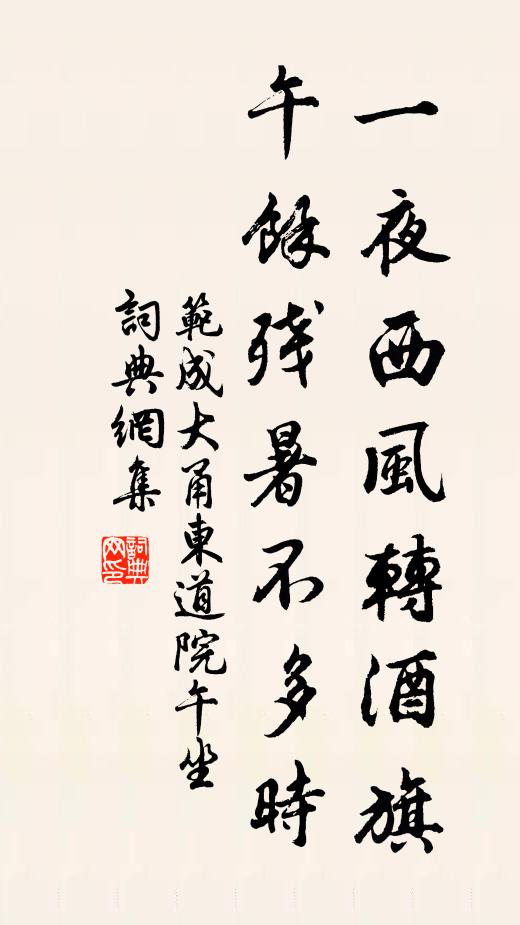 一夜西風轉酒旗
午餘殘暑不多時
範成大甬東道院午坐
詞典網集
詞典网印